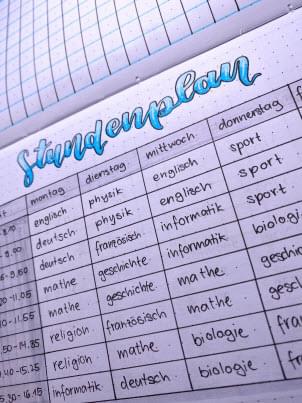 Stundenplan
montag dienstag mittwoch donnerstag
englisch physik englisch sport
9.00 deutsch physik englisch sport
-9.50 deutsch französisch informatik sport
-11.05 mathe geschichte informatik biologi
-11.55 mathe geschichte mathe geschic
-14.35 religion französisch mathe gesch
.40 -15.25 religion mathe biologie fran
.30 -16.15 informatik deutsch biologie fra